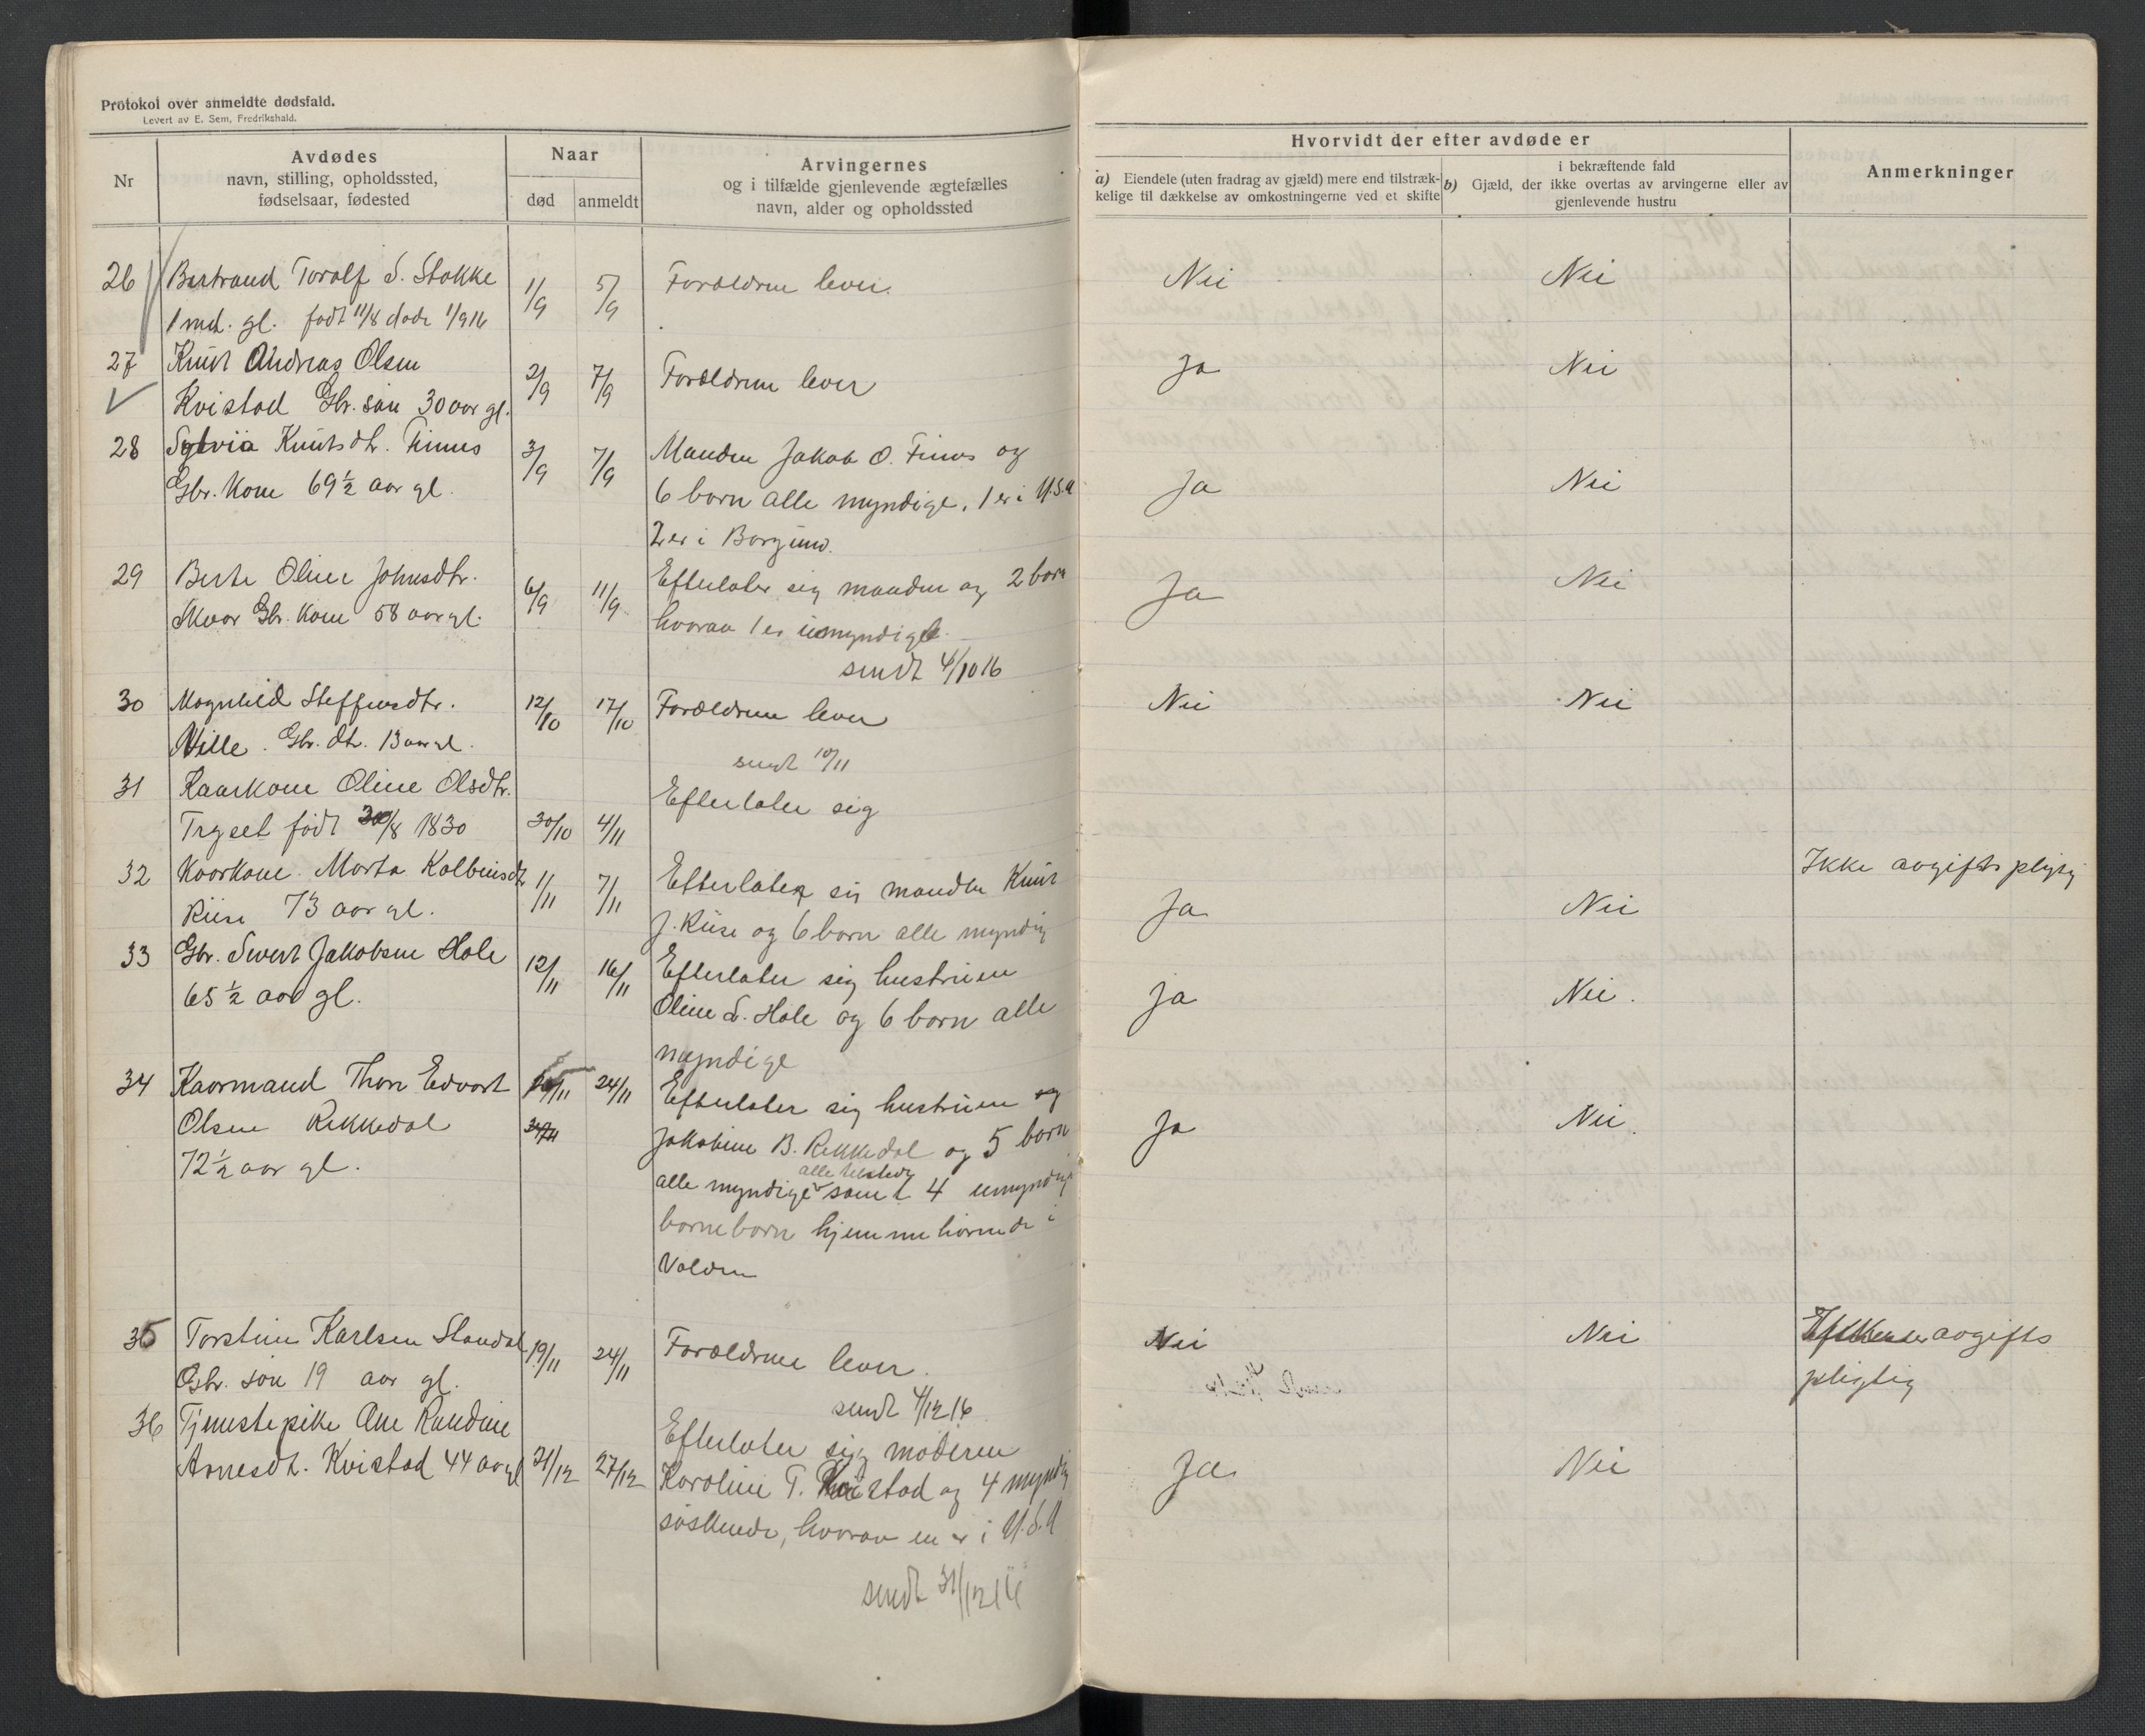 Protokol over anmeldte dødsfald.
Levert av E. Sem, Fredrikshald.
Nr
Avdødes
navn, stilling, opholdssted,
fødselsaar, fødested
Naar
død
anmeldt
Arvingernes
og i tilfælde gjenlevende ægtefælles
navn, alder og opholdssted
Hvorvidt der efter avdøde er
a) Eiendele (uten fradrag av gjæld) mere end tilstræk-
kelige til dækkelse av omkostningerne ved et skifte
i bekræftende fald
b) Gjæld, der ikke overtas av arvingerne eller av
gjenlevende hustru
Anmerkninger
26 Bertrand Toralf S. Stokke 1/9 5/9 Forældrene lever. Nei Nei
1 md. gl. født 11/8 døde 1/9 16
27 Knut Andreas Olsen 2/9 7/9 Forældrene lever Ja Nei
Kvistad Gbr. søn 30 aar gl.
28 Sylvia Knutsdtr. Finnes 3/9 7/9 Manden Jakob O. Finnes og
Gbr. kone 69½ aar gl. 6 børn alle myndige, 1 er i U.S.A Ja Nei
2 er i Borgund.
29 Berte Oline Johnsdtr. 6/9 11/9 Efterlater sig manden og 2 børn Ja Nei
Skaar Gbr. kone 58 aar gl. hvorav 1 er umyndige.
sendt 4/10 16
30 Magnhild Steffensdtr. 12/10 17/10 Forældrene lever Nei Nei
Ville. Gbr. dtr. 13 aar gl.
sendt 10/11
31 Kaarkone Oline Olsdtr. Efterlater sig
Tryset født 30/8 1830 30/10 4/11
32 Kaarkone Marta Kolbeinsdtr 1/11 7/11 Efterlater sig manden Knut Ikke avgiftspligtig
Riise 73 aar gl. J. Riise og 6 børn alle myndig Ja Nei
33 Gbr. Sivert Jakobsen Hole 12/11 16/11 Efterlater sig hustruen
65½ aar gl. Oline S. Hole og 6 børn alle Ja Nei.
myndige
34 Kaarmand Thore Edvart 24/11 Efterlater sig hustruen og
Olsen Rekkedal Jakobine B. Rekkedal og 5 børn Ja Nei.
72½ aar gl. alle myndige alle tilstede samt 4 umyndig
barnebarn hjemmehørende i
Volden
35 Torstein Karlsen Standal 19/11 24/11 Forældrene lever. Nei Nei avgifts
Gbr. søn 19 aar gl. pligtig
sendt 4/12 16
36 Tjenestepike Ane Randine Efterlater sig moderen
Arnesdt. Kvistad 44 aar gl 21/12 27/12 Karoline T. Kvistad og 4 myndig Ja Nei
søskende, hvorav en er i U.S.A
sendt 31/12 16